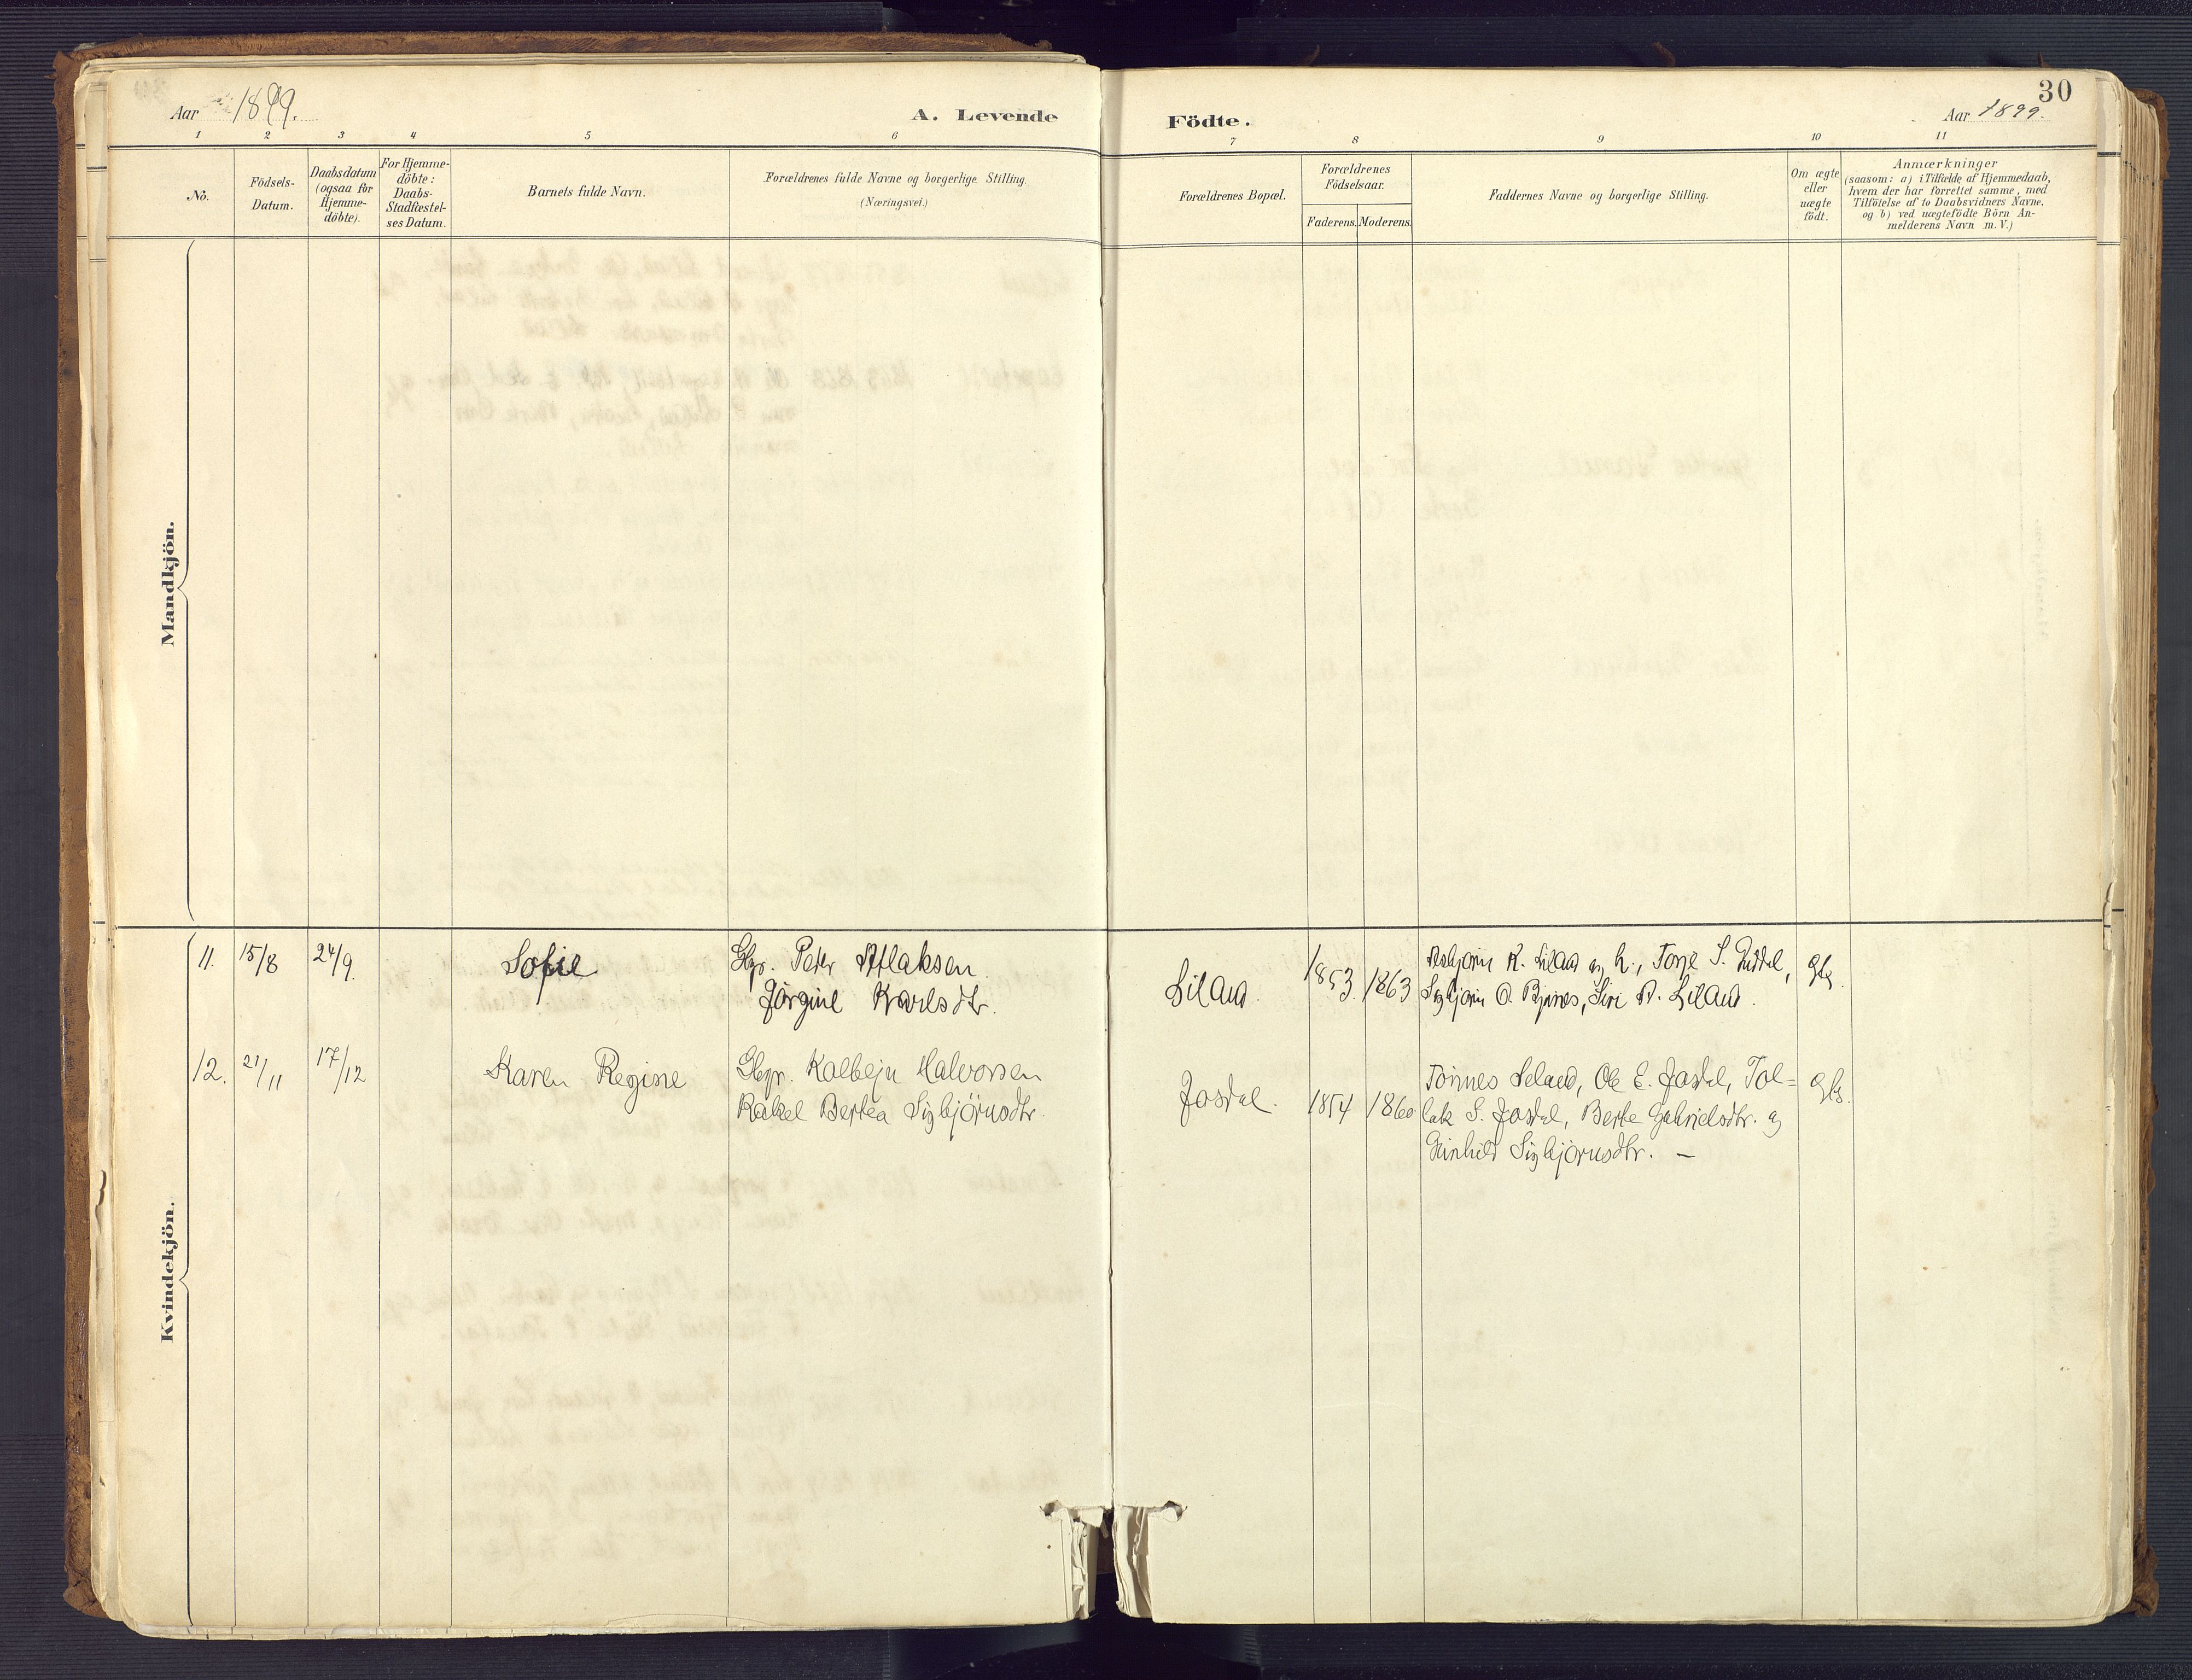 30
Aar 1899.
A. Levende
Födte.
Aar 1899.
1 2 3 4 5 6 7 8 9 10 11
No.
Födsels-
Datum.
Daabsdatum
(ogsaa for
Hjemme-
döbte).
For Hjemme-
döbte:
Daabs-
Stadfæstel-
ses Datum.
Barnets fulde Navn.
Forældrenes fulde Navne og borgerlige Stilling.
(Næringsvei.)
Forældrenes Bopæl.
Forældrenes
Födselsaar.
Faderens. Moderens.
Faddernes Navne og borgerlige Stilling.
Om ægte
eller
uægte
födt.
Anmærkninger
(saasom: a) i Tilfælde af Hjemmedaab,
hvem der har forrettet samme, med
Tilföielse af to Daabsvidners Navne.
og b) ved uægtefödte Börn An-
melderens Navn m. V.)
Mandkjön.
Kvindekjön.
11. 15/8 24/9. Sofie
Gbr. Peter Aslaksen
Jörgine Karlsdtr.
Liland. 1853. 1863
Asbjørn K. Liland og h., Torje S.
Sigbjørn O. Bjnes, Siri A. Liland.
12. 21/11 17/12 Karen Regine
Gbr. Kolbejn Halvorsen
Rakel Bertea Sigbjörnsdtr.
Josdal. 1854 1860
Tönnes Seland, Ole E. Josdal, Tol=
lak S. Josdal, Berte Gabrielsdtr. og
Gunhild Sigbjørnsdtr. —